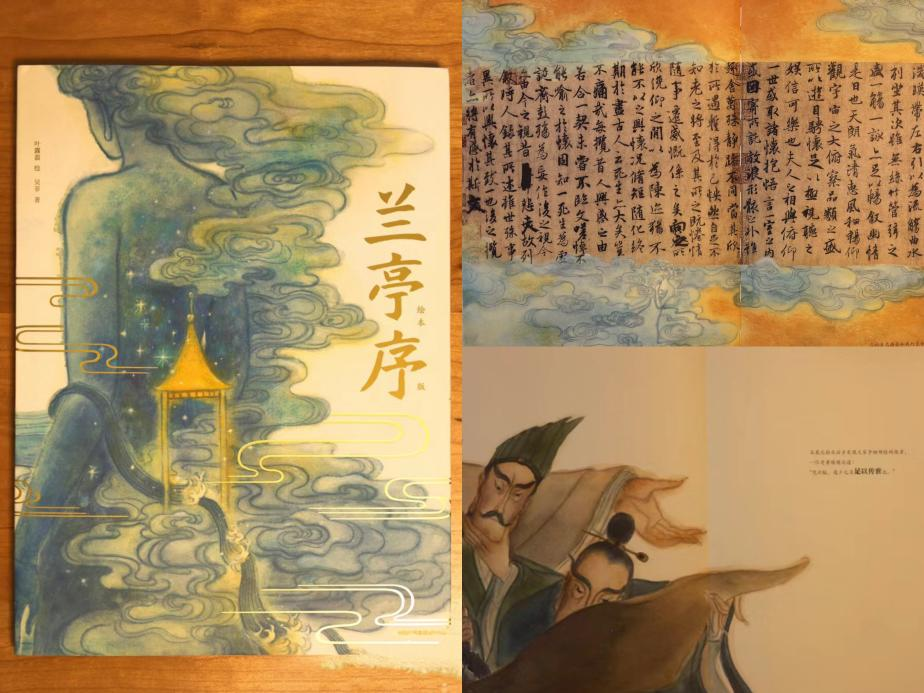 叶露盈 绘 吴菲 著
兰亭序
绘本版
湍暎帶左右引以為流觴曲水
列坐其次雖無絲竹管弦之
盛一觴一詠亦足以暢敘幽情
是日也天朗氣清惠風和暢仰
觀宇宙之大俯察品類之盛
所以遊目騁懷足以極視聽之
娛信可樂也夫人之相與俯仰
一世或取諸懷抱悟言一室之內
或因寄所託放浪形骸之外雖
趣舍萬殊靜躁不同當其欣
於所遇暫得於己怏然自足不
知老之將至及其所之既惓情
隨事遷感慨係之矣向之所
欣俛仰之閒以為陳迹猶不
能不以之興懷況脩短隨化終
期於盡古人云死生亦大矣豈
不痛哉每攬昔人興感之由
若合一契未嘗不臨文嗟悼不
能喻之於懷固知一死生為虛
誕齊彭殤為妄作後之視今
亦由今之視昔悲夫故列
敘時人錄其所述雖世殊事
異所以興懷其致一也後之攬
者亦將有感於斯文
足以传世